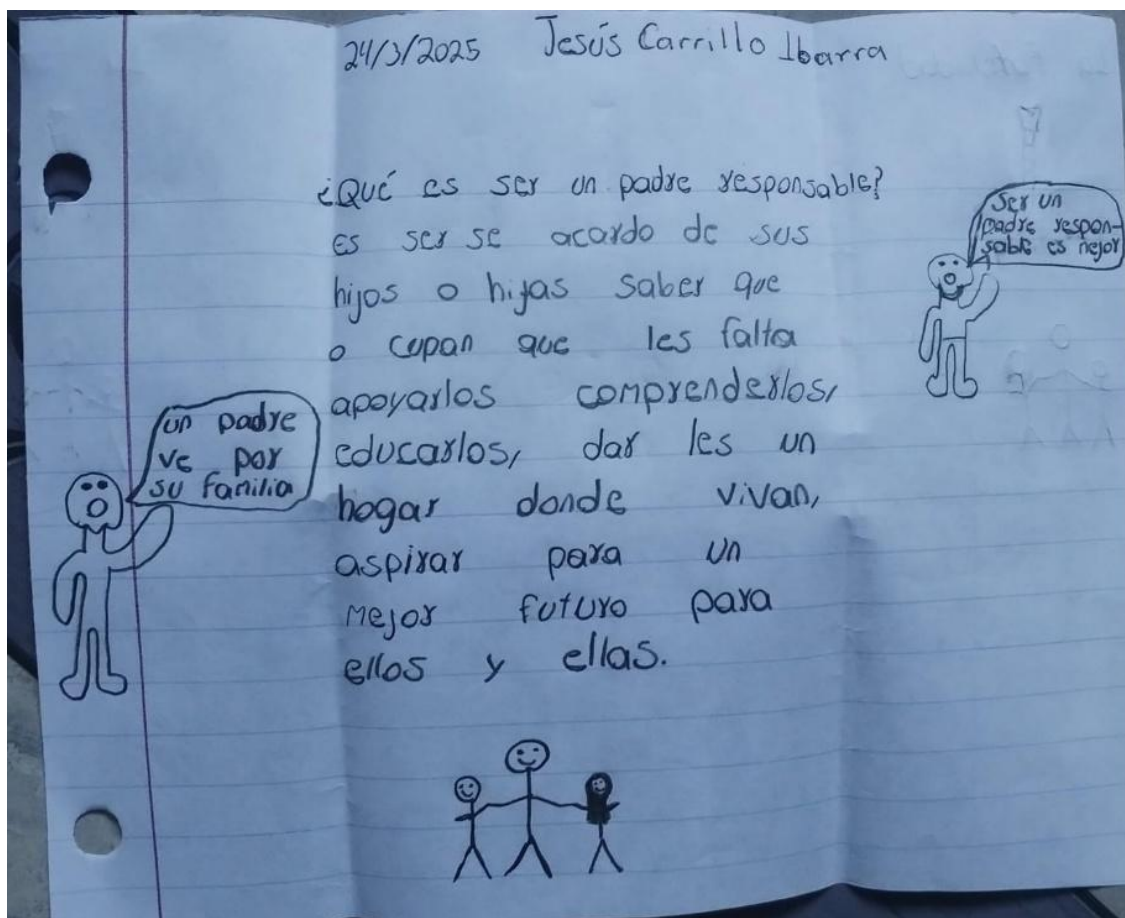 24/3/2025 Jesús Carrillo Ibarra
¿Qué es ser un padre responsable?
es ser se acardo de sus
hijos o hijas saber que
o cupan que les falta
apoyarlos comprenderlos,
educarlos, dar les un
hogar donde vivan,
aspirar para un
mejor futuro para
ellos y ellas.
Ser un
padre respon-
sable es mejor
un padre
ve por
su familia